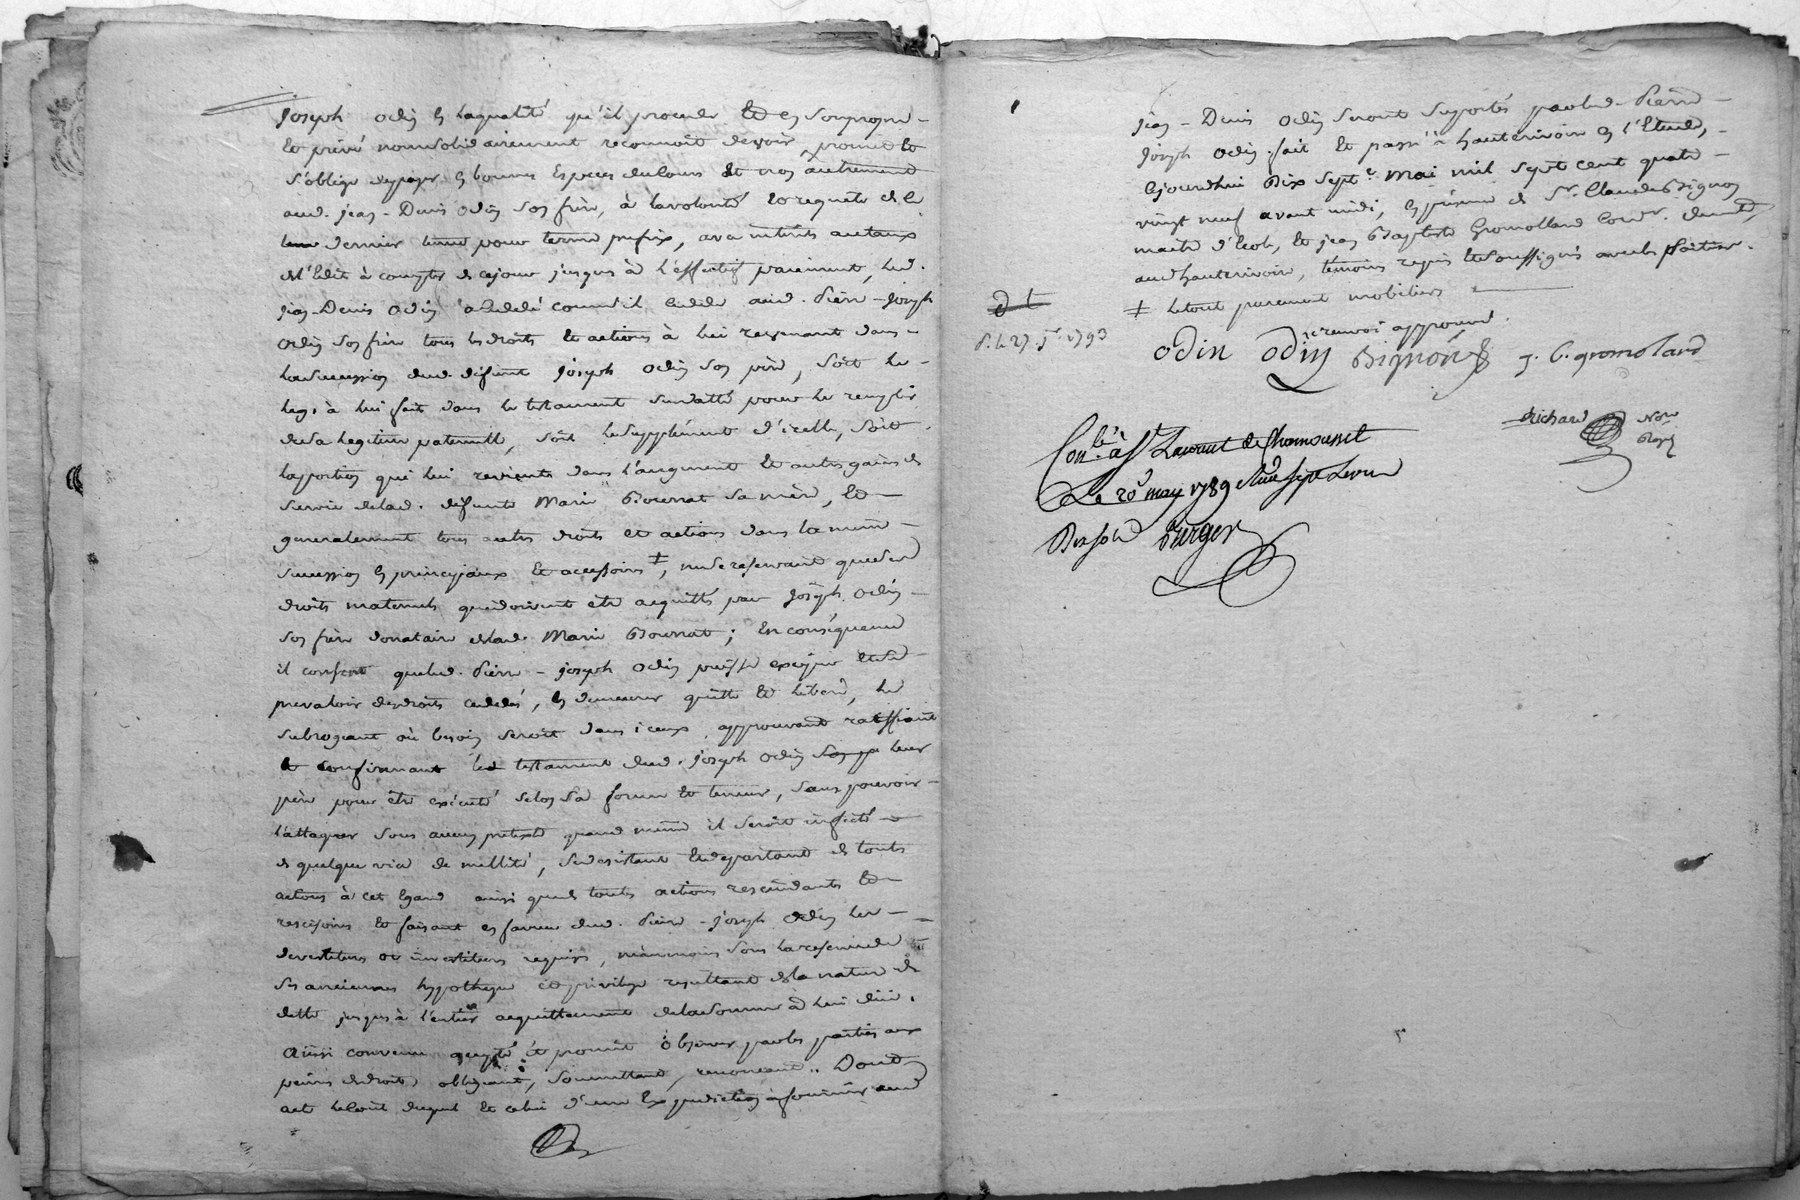 Joseph odin en laqualité qu'il procede et en sonpropre
et privé nom solidairement reconnoit devoir, promet et
s'oblige depayer en bonnes Especes ducours et non autrement
aud. jean-Denis odin son frere, à lavolonté et requete de ce
dernier pour terme prefix, avec interets autaux
del'Edit à compter de cejour jusques à l'effectif paiement, led.
jean-Denis odin a cedé comme il cede aud. Pierre-joseph
odin son frere tous les droits et actions à lui revenant dans
lasuccession dud. défunt joseph odin son pere, soit le
legs à lui fait dans le testament susdatté pour le remplir
desa legitime paternelle, soit lesupplément d'icelle, soit
laportion qui lui revient dans l'augment et autres gains de
survie delad. défunte Marie Bournat sa mere, et
generalement tous autres droits et actions dans la meme
succession en principaux et accessoires ‡, nesereservant queses
droits maternels quedoivent etre acquittés par Joseph odin
son frere donataire delad. Marie Bournat ; En conséquence
il consent queled. Pierre-joseph odin puisse exiger et se
prevaloir desdroits cedés, en demeurer quitte et libere, le
subrogeant où besoin seroit dans iceux, approuvant ratiffiant
et confirmant led testament dud. joseph odin leur
pere pour etre exécuté selon sa forme et teneur, sans pouvoir
l'attaquer sous aucun pretexte quand meme il seroit infecté
de quelque vice de nullité, sedesistant et departant de toutes
actions à cet egard ainsi quede toutes actions rescindantes et
rescisoires et faisant en faveur dud. Pierre-joseph odin les
devestitures et investitures requises, néanmoins sous lareserve de
ses anciennes hypotheque et privilege resultant dela nature de
dette jusques à l'entier acquittement delasomme à lui düe.
Ainsi convenu accepté et promit observer parles parties aux
peines dedroit, obligeant, soumettant, renonceant.. Dont
acte lecout duquel et celui d'une Expedition àfournir aud
jean-Denis odin seront suportés parled. Pierre
joseph odin. fait et passé à hauterivoire en l'Etude,
cejourdhui dix sept.e mai mil sept cent quatre
vingt neuf avant midi, en présence de Sr. Claude Bignon
maitre d'école, et jean Baptiste Gromolland Cord.r demt.
aud hauterivoire, témoins requis et soussignés avec les parties.
‡ letout purement mobiliers
renvoi approuvé.
odin odin Bignon J. B. gromoland
Richard Nore Royal
Con.lé à St Laurent de Chamousset
Le 20 may 1789
Burger